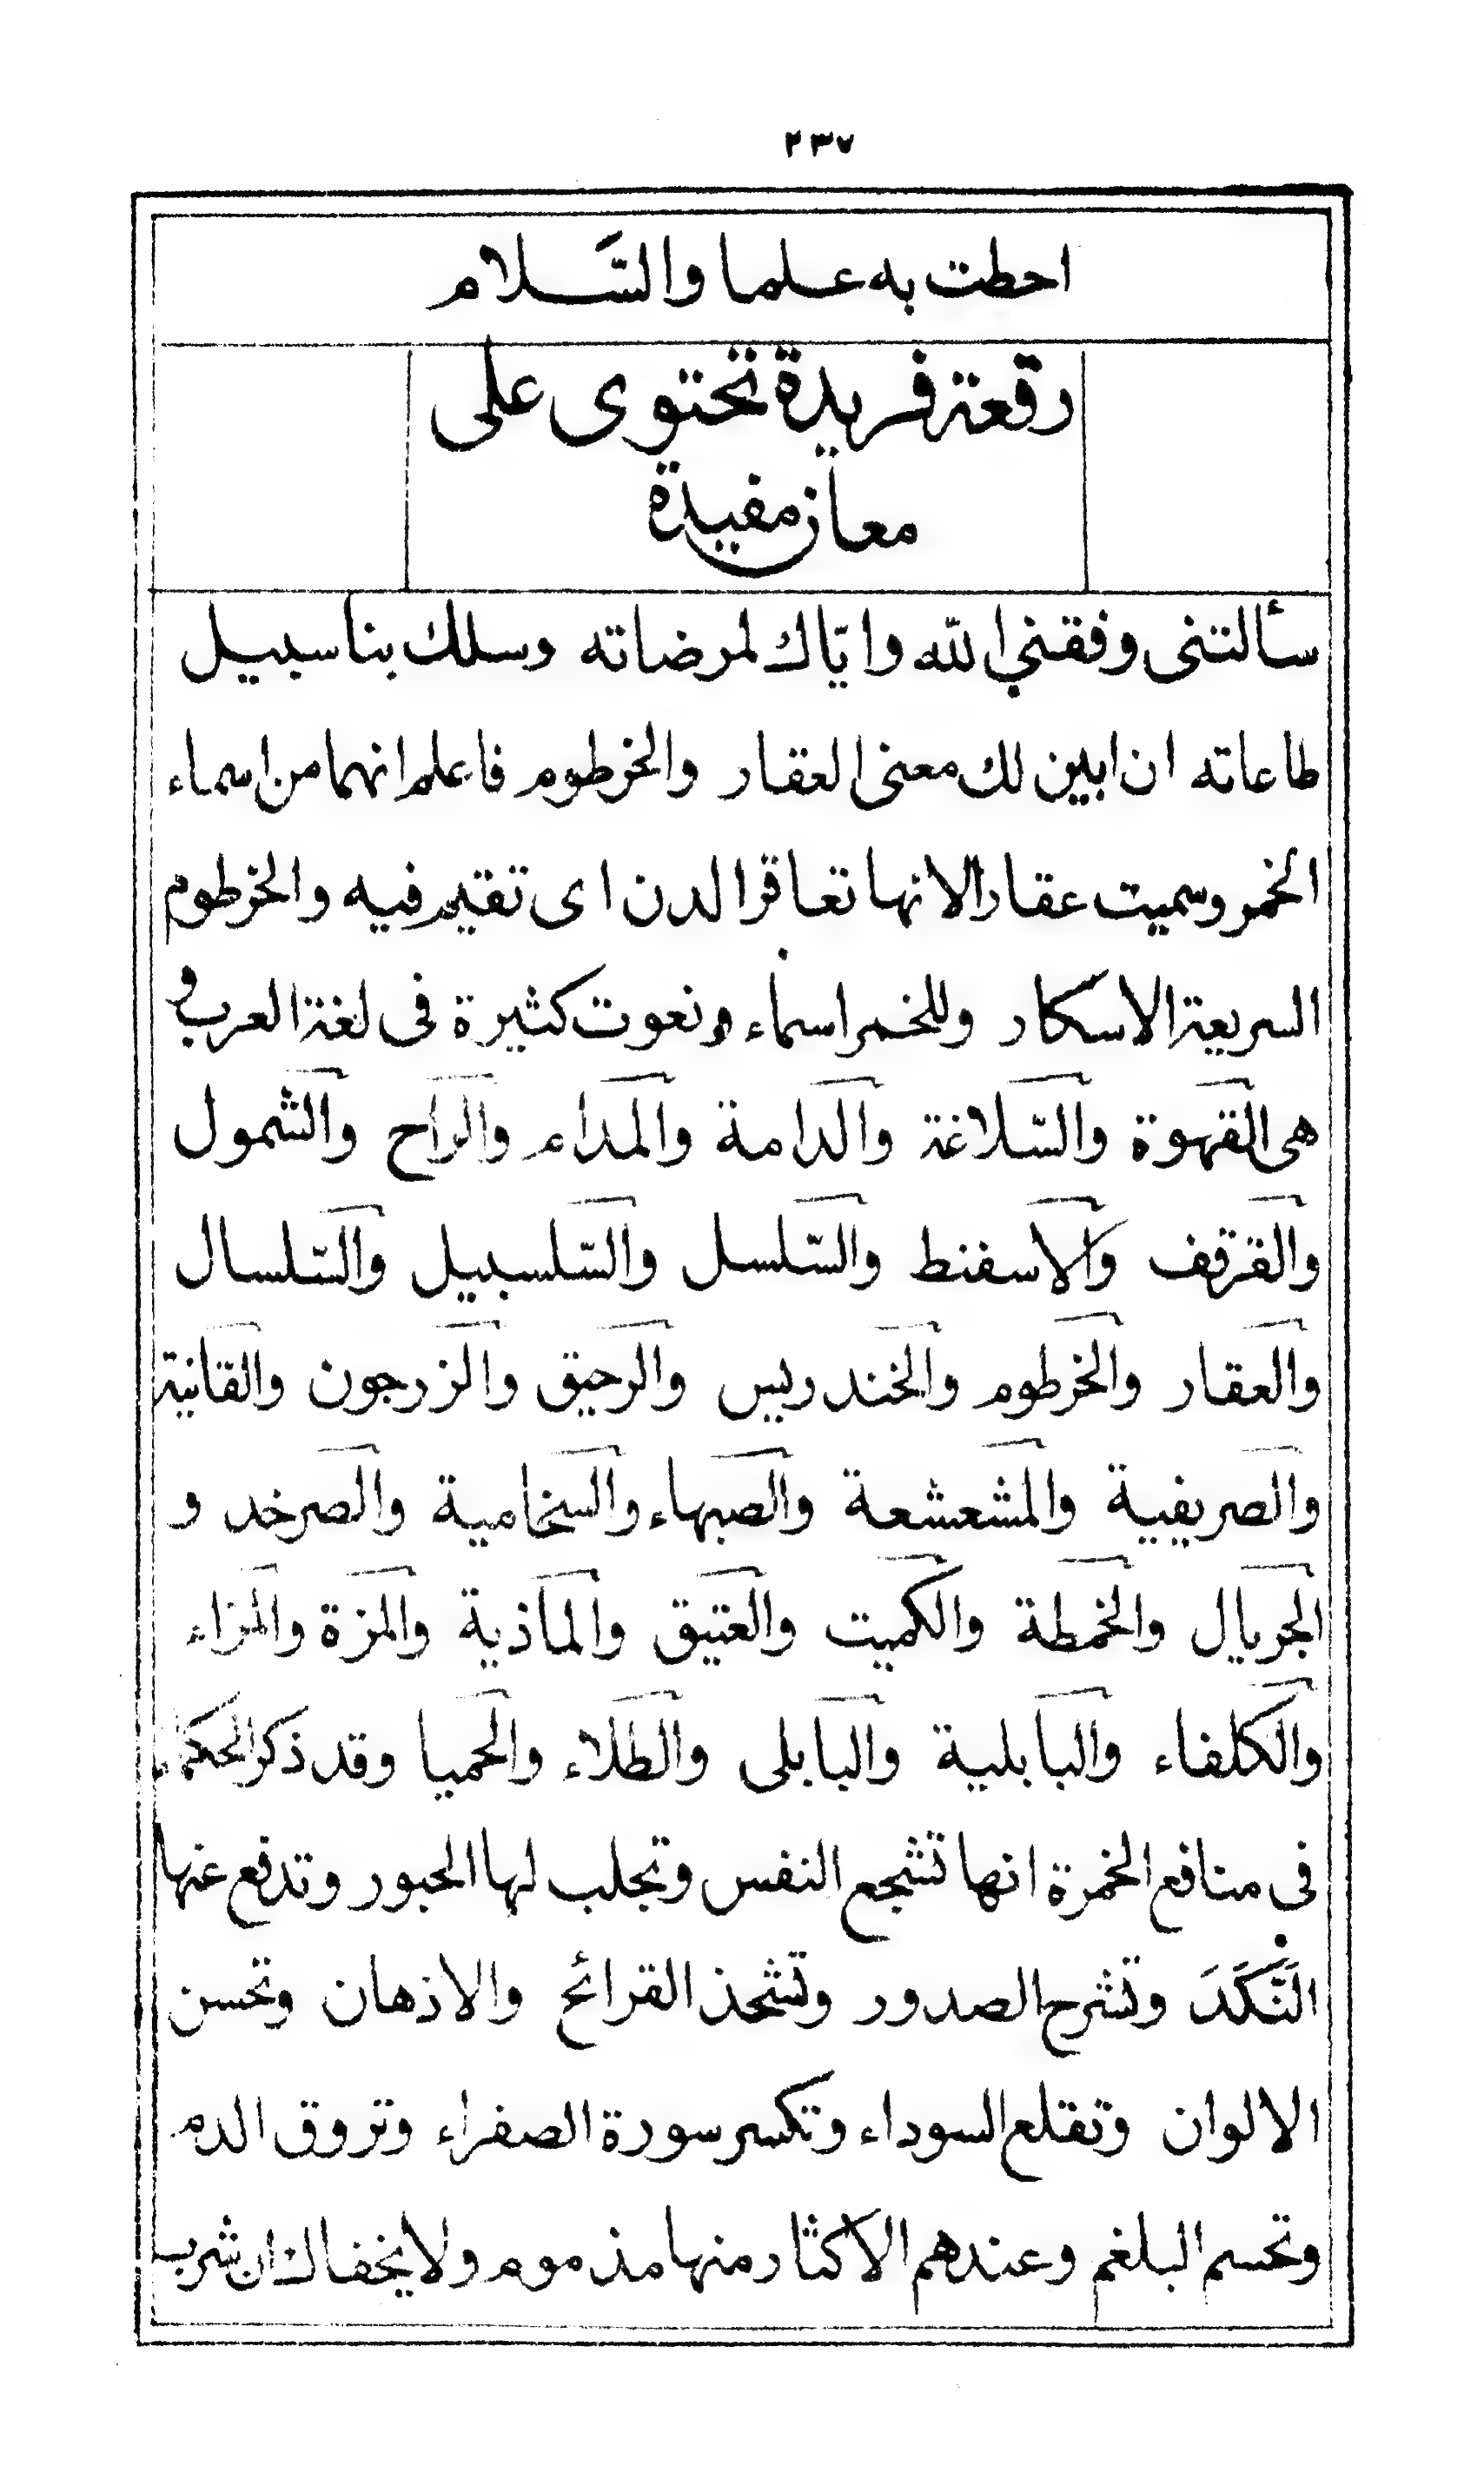 ٢٣٧
احطت به علما والسَّلام
رقعة فريدة تحتوى على
معان مفيدة
سألتنى وفقني الله واياّك لمرضاته وسلك بنا سبيل
طاعاته ان ابين لك معنى العقار والخرطوم فاعلم انهما من اسماء
الخمر وسميت عقارا لانها تعاقر الدن اى تقيم فيه والخرطوم
السريعة الاسكار وللخمر اسماء ونعوت كثيرة فى لغة العرب و
هى القهوة والسّلاغة والدامة والمدام والراح والشمول
والقرقف والاسفنط والسّلسل والسّلسبيل والسّلسال
والعقار والخرطوم والخندريس والرحيق والزرجون والقانية
والصريفية والمشعشعة والصهباء والسخامية والصرخد و
الجريال والخمطة والكميت والعتيق والماذية والمزة والمزاء
والكلفاء والبابلية والبابلى والطلاء والحميا وقد ذكر الحكماء
فى منافع الخمرة انها تشجع النفس وتجلب لها الحبور وتدفع عنها
النَّكَدَ وتشرح الصدور وتشحذ القرائح والاذهان وتحسن
الالوان وتقلع السوداء وتكسر سورة الصفراء وتروق الدم
وتحسم البلغم وعندهم الاكثار منها مذموم ولا يخفاك ان شرب